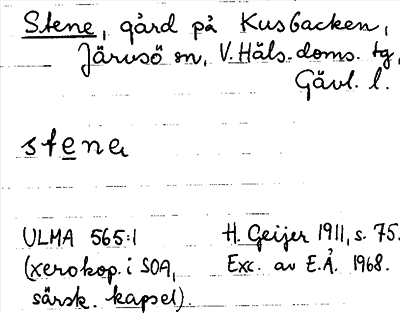 Stene, gård på Kusbacken,
Järvsö sn, V. Häls. doms. tg,
Gävl. l.
stene
ULMA 565:1 H. Geijer 1911, s. 75.
(xerokop. i SOA, Exc. av E.Å. 1968.
särsk. kapsel).